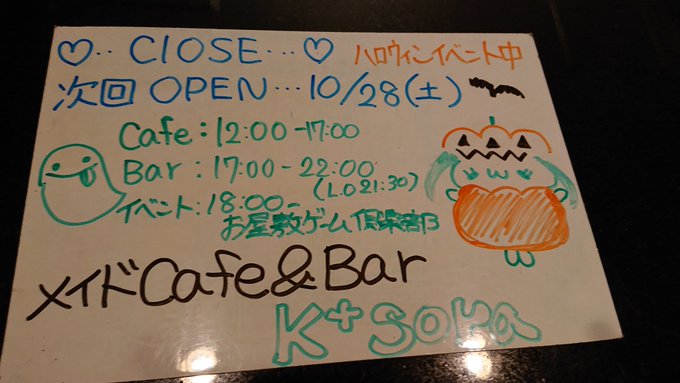 ♡‥ CLOSE…♡ ハロウィンイベント中
次回 OPEN…10/28(土)
Cafe:12:00-17:00
Bar:17:00-22:00
(L.O21:30)
イベント:18:00-
お屋敷ゲーム倶楽部
メイドCafe&Bar
K+sora